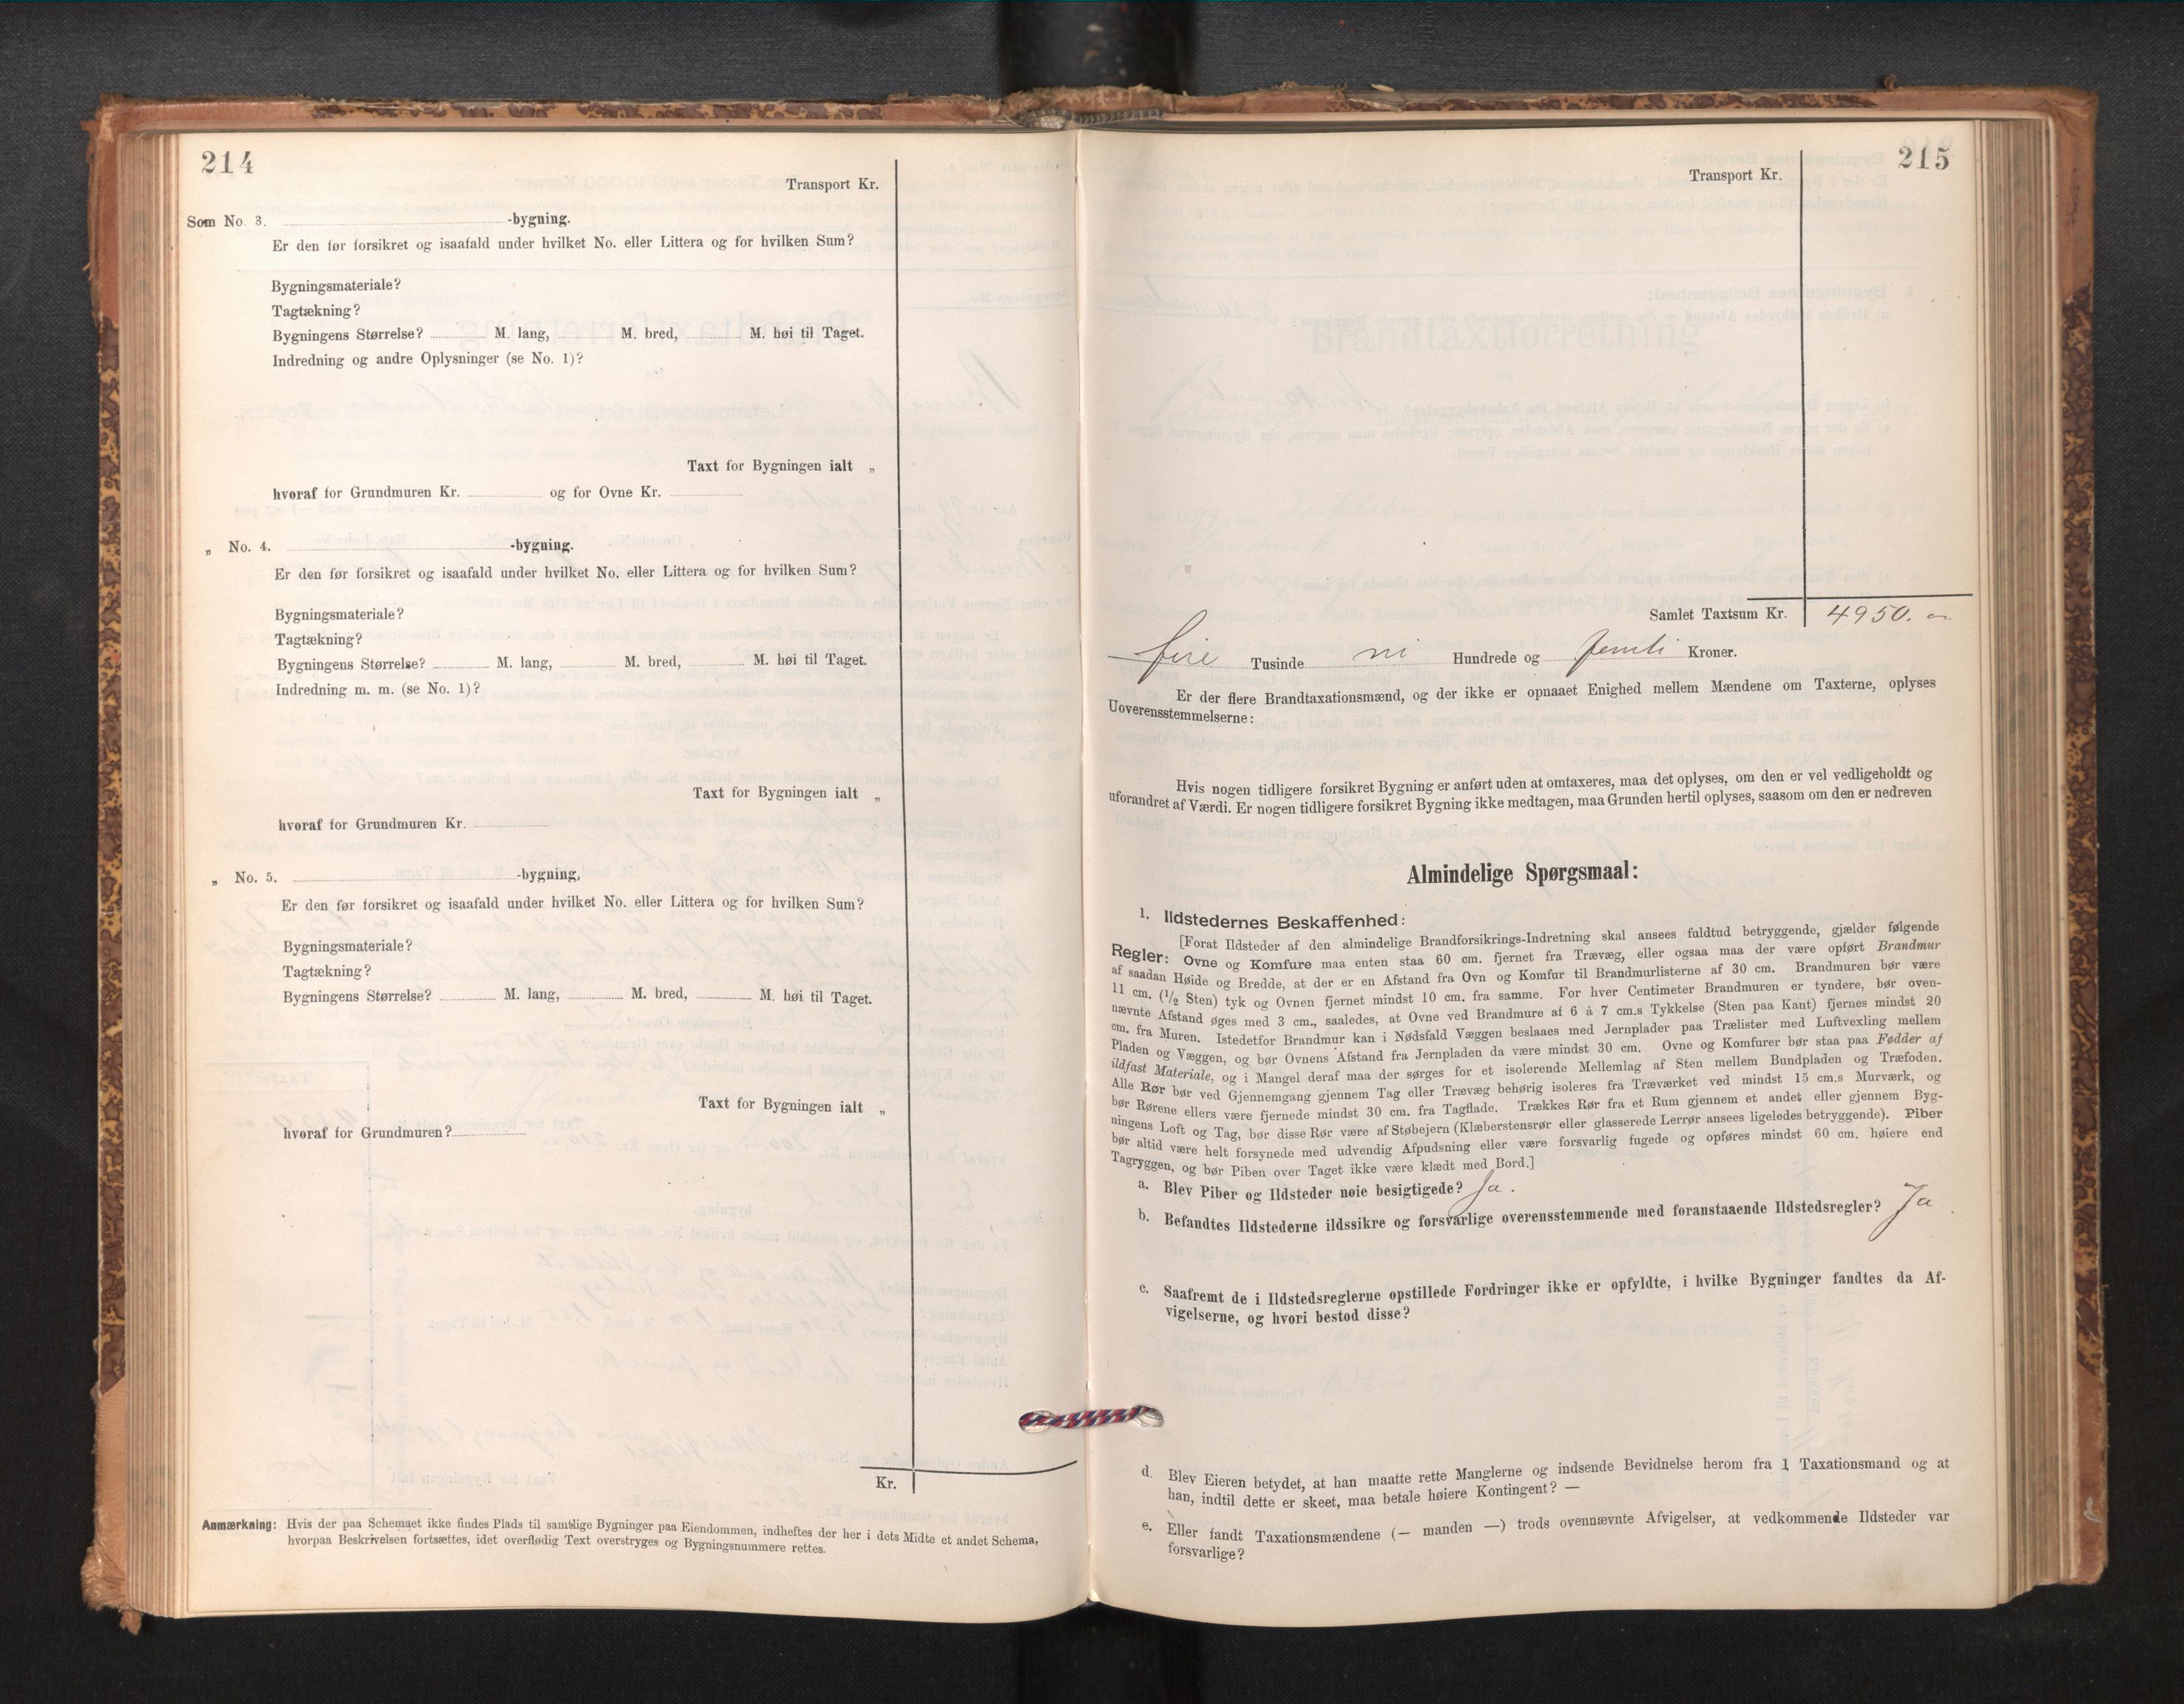 214
Transport Kr.
Som No. 3. -bygning.
Er den før forsikret og isaafald under hvilket No. eller Littera og for hvilken Sum?
Bygningsmateriale?
Tagtækning?
Bygningens Størrelse? M. lang, M. bred, M. høi til Taget.
Indredning og andre Oplysninger (se No. 1)?
Taxt for Bygningen ialt „
hvoraf for Grundmuren Kr. og for Ovne Kr.
„ No. 4. -bygning.
Er den før forsikret og isaafald under hvilket No. eller Littera og for hvilken Sum?
Bygningsmateriale?
Tagtækning?
Bygningens Størrelse? M. lang, M. bred, M. høi til Taget.
Indredning m. m. (se No. 1)?
Taxt for Bygningen ialt „
hvoraf for Grundmuren Kr.
„ No. 5. -bygning,
Er den før forsikret og isaafald under hvilket No. eller Littera og for hvilken Sum?
Bygningsmateriale?
Tagtækning?
Bygningens Størrelse? M. lang, M. bred, M. høi til Taget.
Taxt for Bygningen ialt „
hvoraf for Grundmuren?
Kr.
Anmærkning: Hvis der paa Schemaet ikke findes Plads til samtlige Bygninger paa Eiendommen, indheftes der her i dets Midte et andet Schema,
hvorpaa Beskrivelsen fortsættes, idet overflødig Text overstryges og Bygningsnummere rettes.
215
Transport Kr.
Samlet Taxtsum Kr. 4950.
fire Tusinde ni Hundrede og femti Kroner.
Er der flere Brandtaxationsmænd, og der ikke er opnaaet Enighed mellem Mændene om Taxterne, oplyses
Uoverensstemmelserne:
Hvis nogen tidligere forsikret Bygning er anført uden at omtaxeres, maa det oplyses, om den er vel vedligeholdt og
uforandret af Værdi. Er nogen tidligere forsikret Bygning ikke medtagen, maa Grunden hertil oplyses, saasom om den er nedreven
Almindelige Spørgsmaal:
1. Ildstedernes Beskaffenhed:
[Forat Ildsteder af den almindelige Brandforsikrings-Indretning skal ansees fuldtud betryggende, gjælder følgende
Regler: Ovne og Komfure maa enten staa 60 cm. fjernet fra Trævæg, eller ogsaa maa der være opført Brandmur
af saadan Høide og Bredde, at der er en Afstand fra Ovn og Komfur til Brandmurlisterne af 30 cm. Brandmuren bør være
11 cm. (1/2 Sten) tyk og Ovnen fjernet mindst 10 cm. fra samme. For hver Centimeter Brandmuren er tyndere, bør oven-
nævnte Afstand øges med 3 cm., saaledes, at Ovne ved Brandmure af 6 à 7 cm.s Tykkelse (Sten paa Kant) fjernes mindst 20
cm. fra Muren. Istedetfor Brandmur kan i Nødsfald Væggen beslaaes med Jernplader paa Trælister med Luftvexling mellem
Pladen og Væggen, og bør Ovnens Afstand fra Jernpladen da være mindst 30 cm. Ovne og Komfurer bør staa paa Fødder af
ildfast Materiale, og i Mangel deraf maa der sørges for et isolerende Mellemlag af Sten mellem Bundpladen og Træfoden.
Alle Rør bør ved Gjennemgang gjennem Tag eller Trævæg behørig isoleres fra Træværket ved mindst 15 cm.s Murværk, og
bør Rørene ellers være fjernede mindst 30 cm. fra Tagflade. Trækkes Rør fra et Rum gjennem et andet eller gjennem Byg-
ningens Loft og Tag, bør disse Rør være af Støbejern (Klæberstensrør eller glasserede Lerrør ansees ligeledes betryggende). Piber
bør altid være helt forsynede med udvendig Afpudsning eller være forsvarlig fugede og opføres mindst 60 cm. høiere end
Tagryggen, og bør Piben over Taget ikke være klædt med Bord.]
a. Blev Piber og Ildsteder nøie besigtigede? Ja.
b. Befandtes Ildstederne ildssikre og forsvarlige overensstemmende med foranstaaende Ildstedsregler? Ja
c. Saafremt de i Ildstedsreglerne opstillede Fordringer ikke er opfyldte, i hvilke Bygninger fandtes da Af-
vigelserne, og hvori bestod disse?
d. Blev Eieren betydet, at han maatte rette Manglerne og indsende Bevidnelse herom fra 1 Taxationsmand og at
han, indtil dette er skeet, maa betale høiere Kontingent? —
e. Eller fandt Taxationsmændene (— manden —) trods ovennævnte Afvigelser, at vedkommende Ildsteder var
forsvarlige?